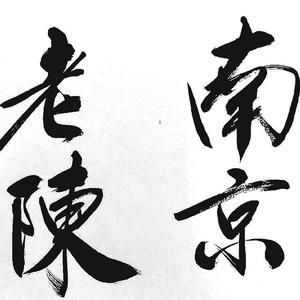 南京
老陳